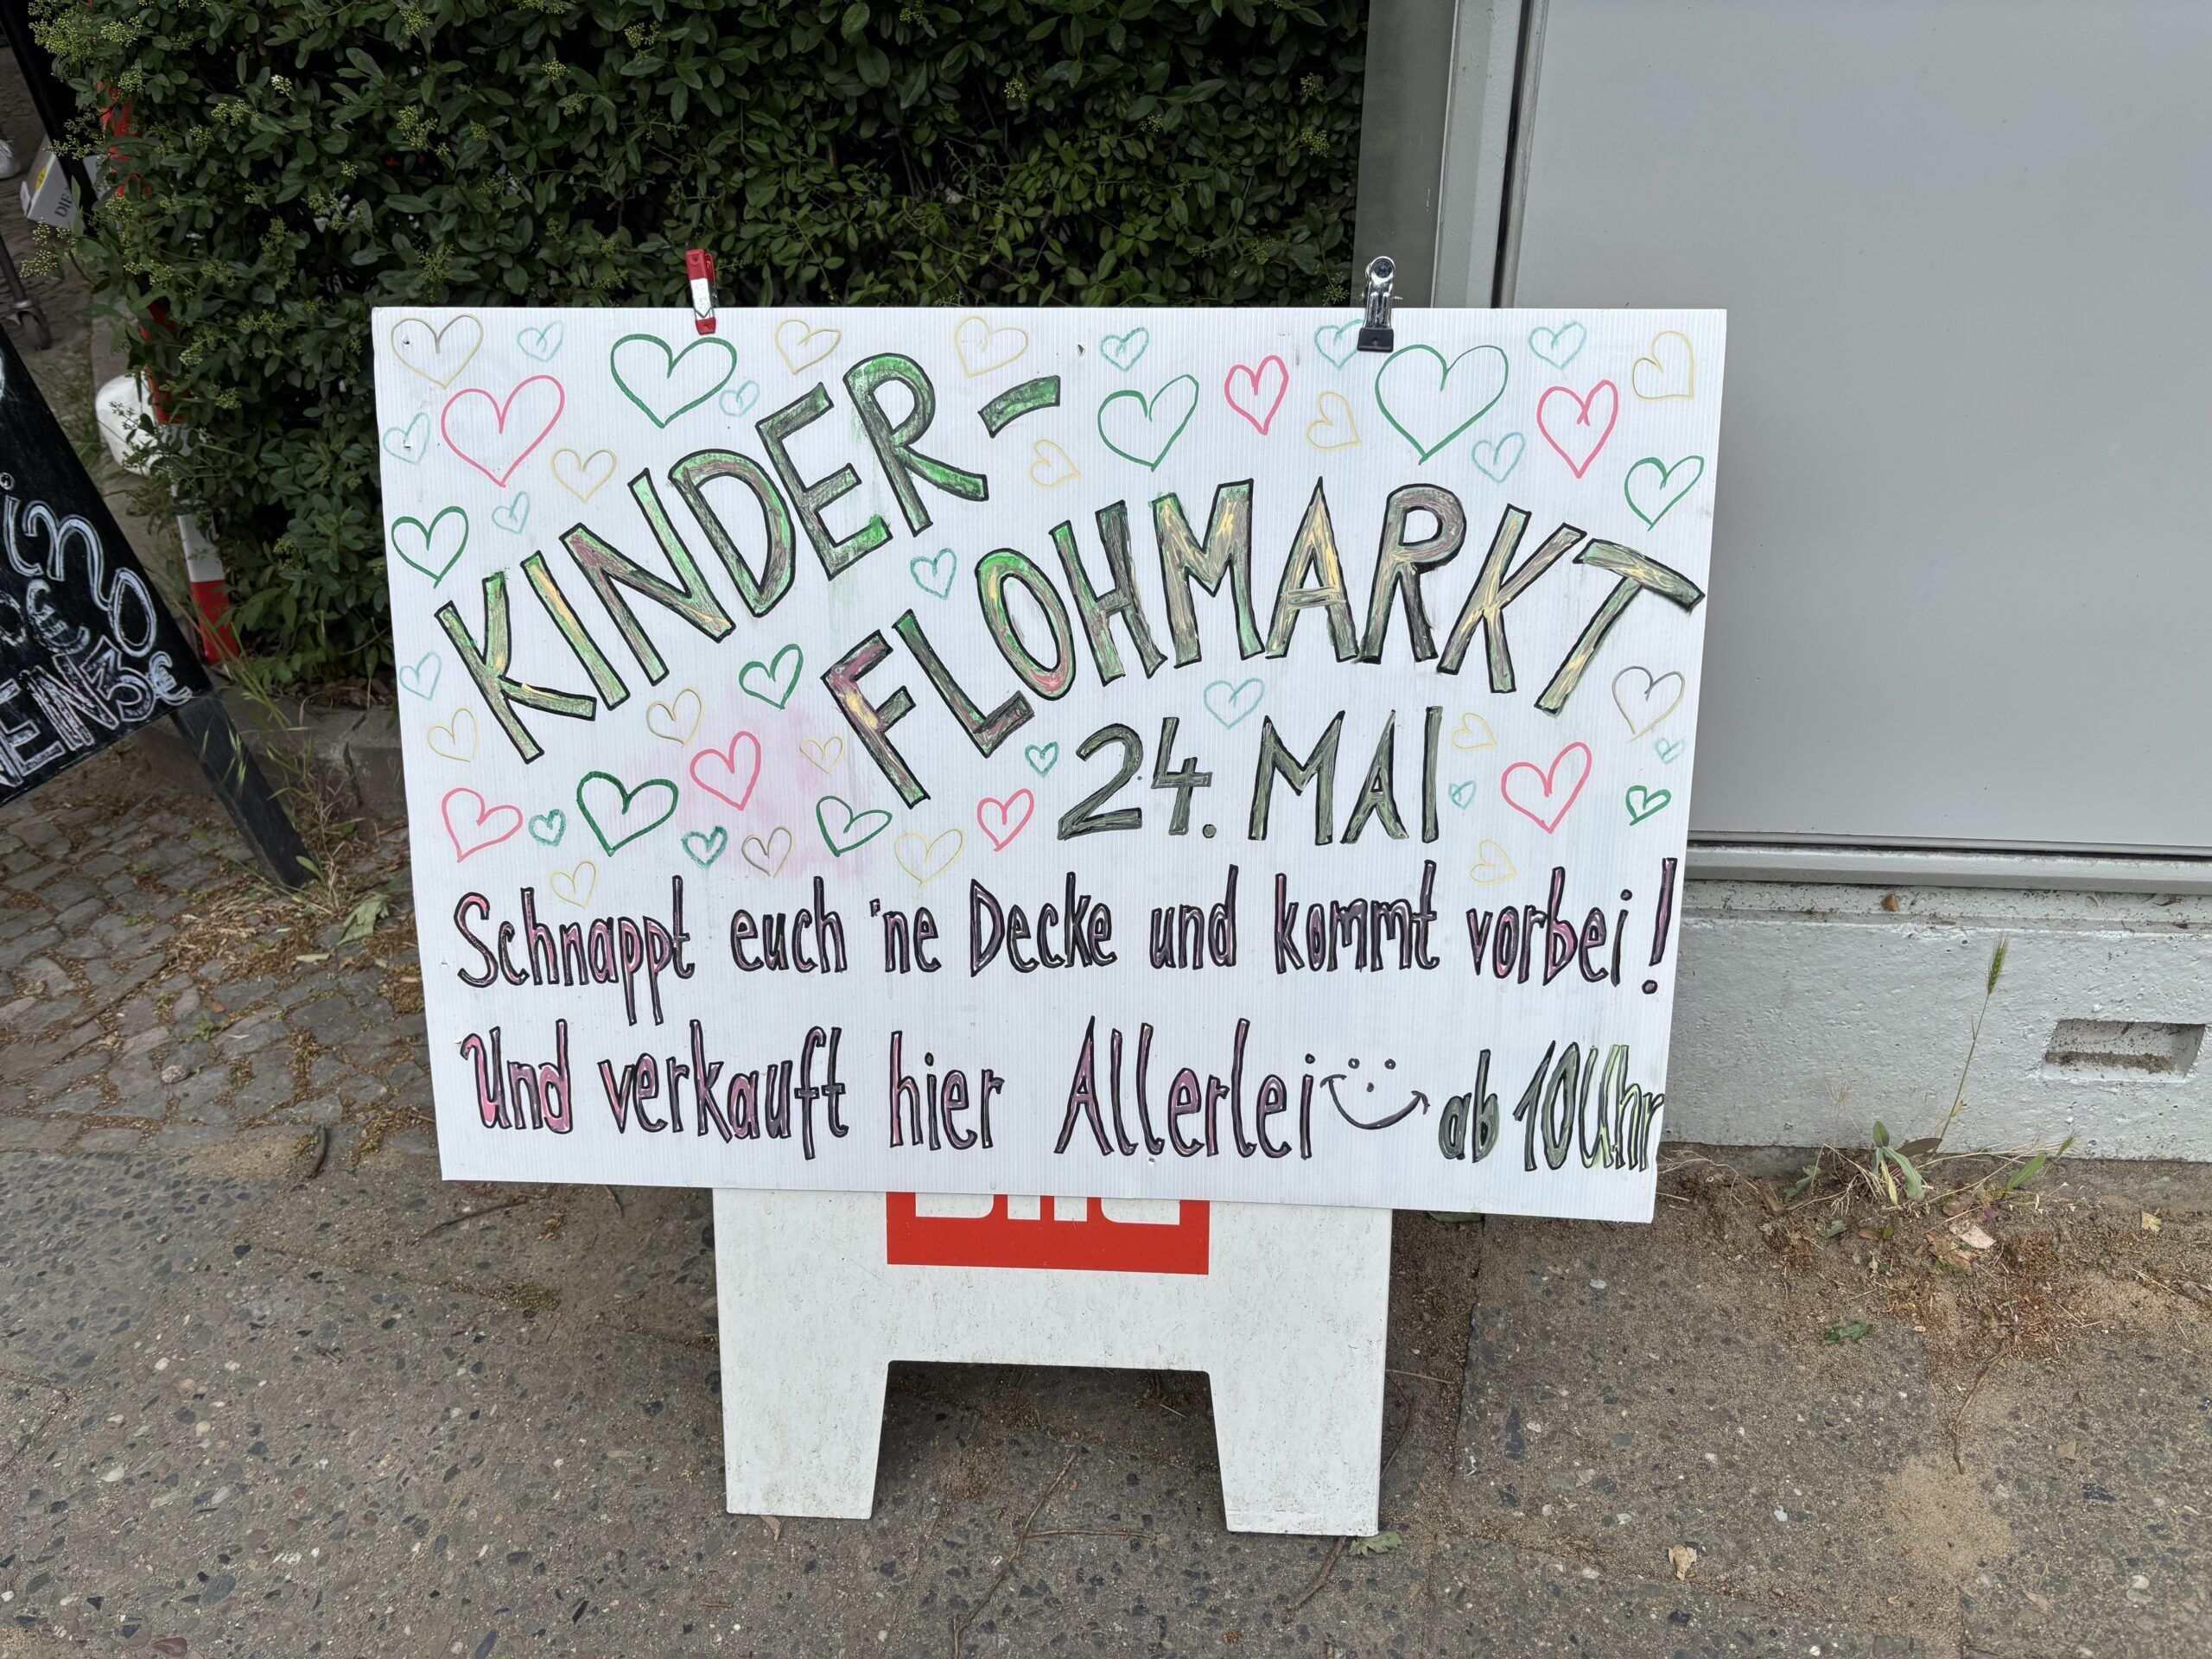 KINDER-
FLOHMARKT
24. MAI
Schnappt euch 'ne Decke und kommt vorbei!
Und verkauft hier Allerlei ab 10Uhr